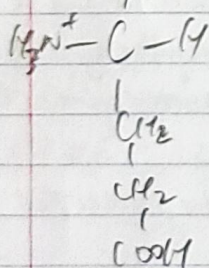 H₃N⁺—C—H
|
CH₂
|
CH₂
|
COOH